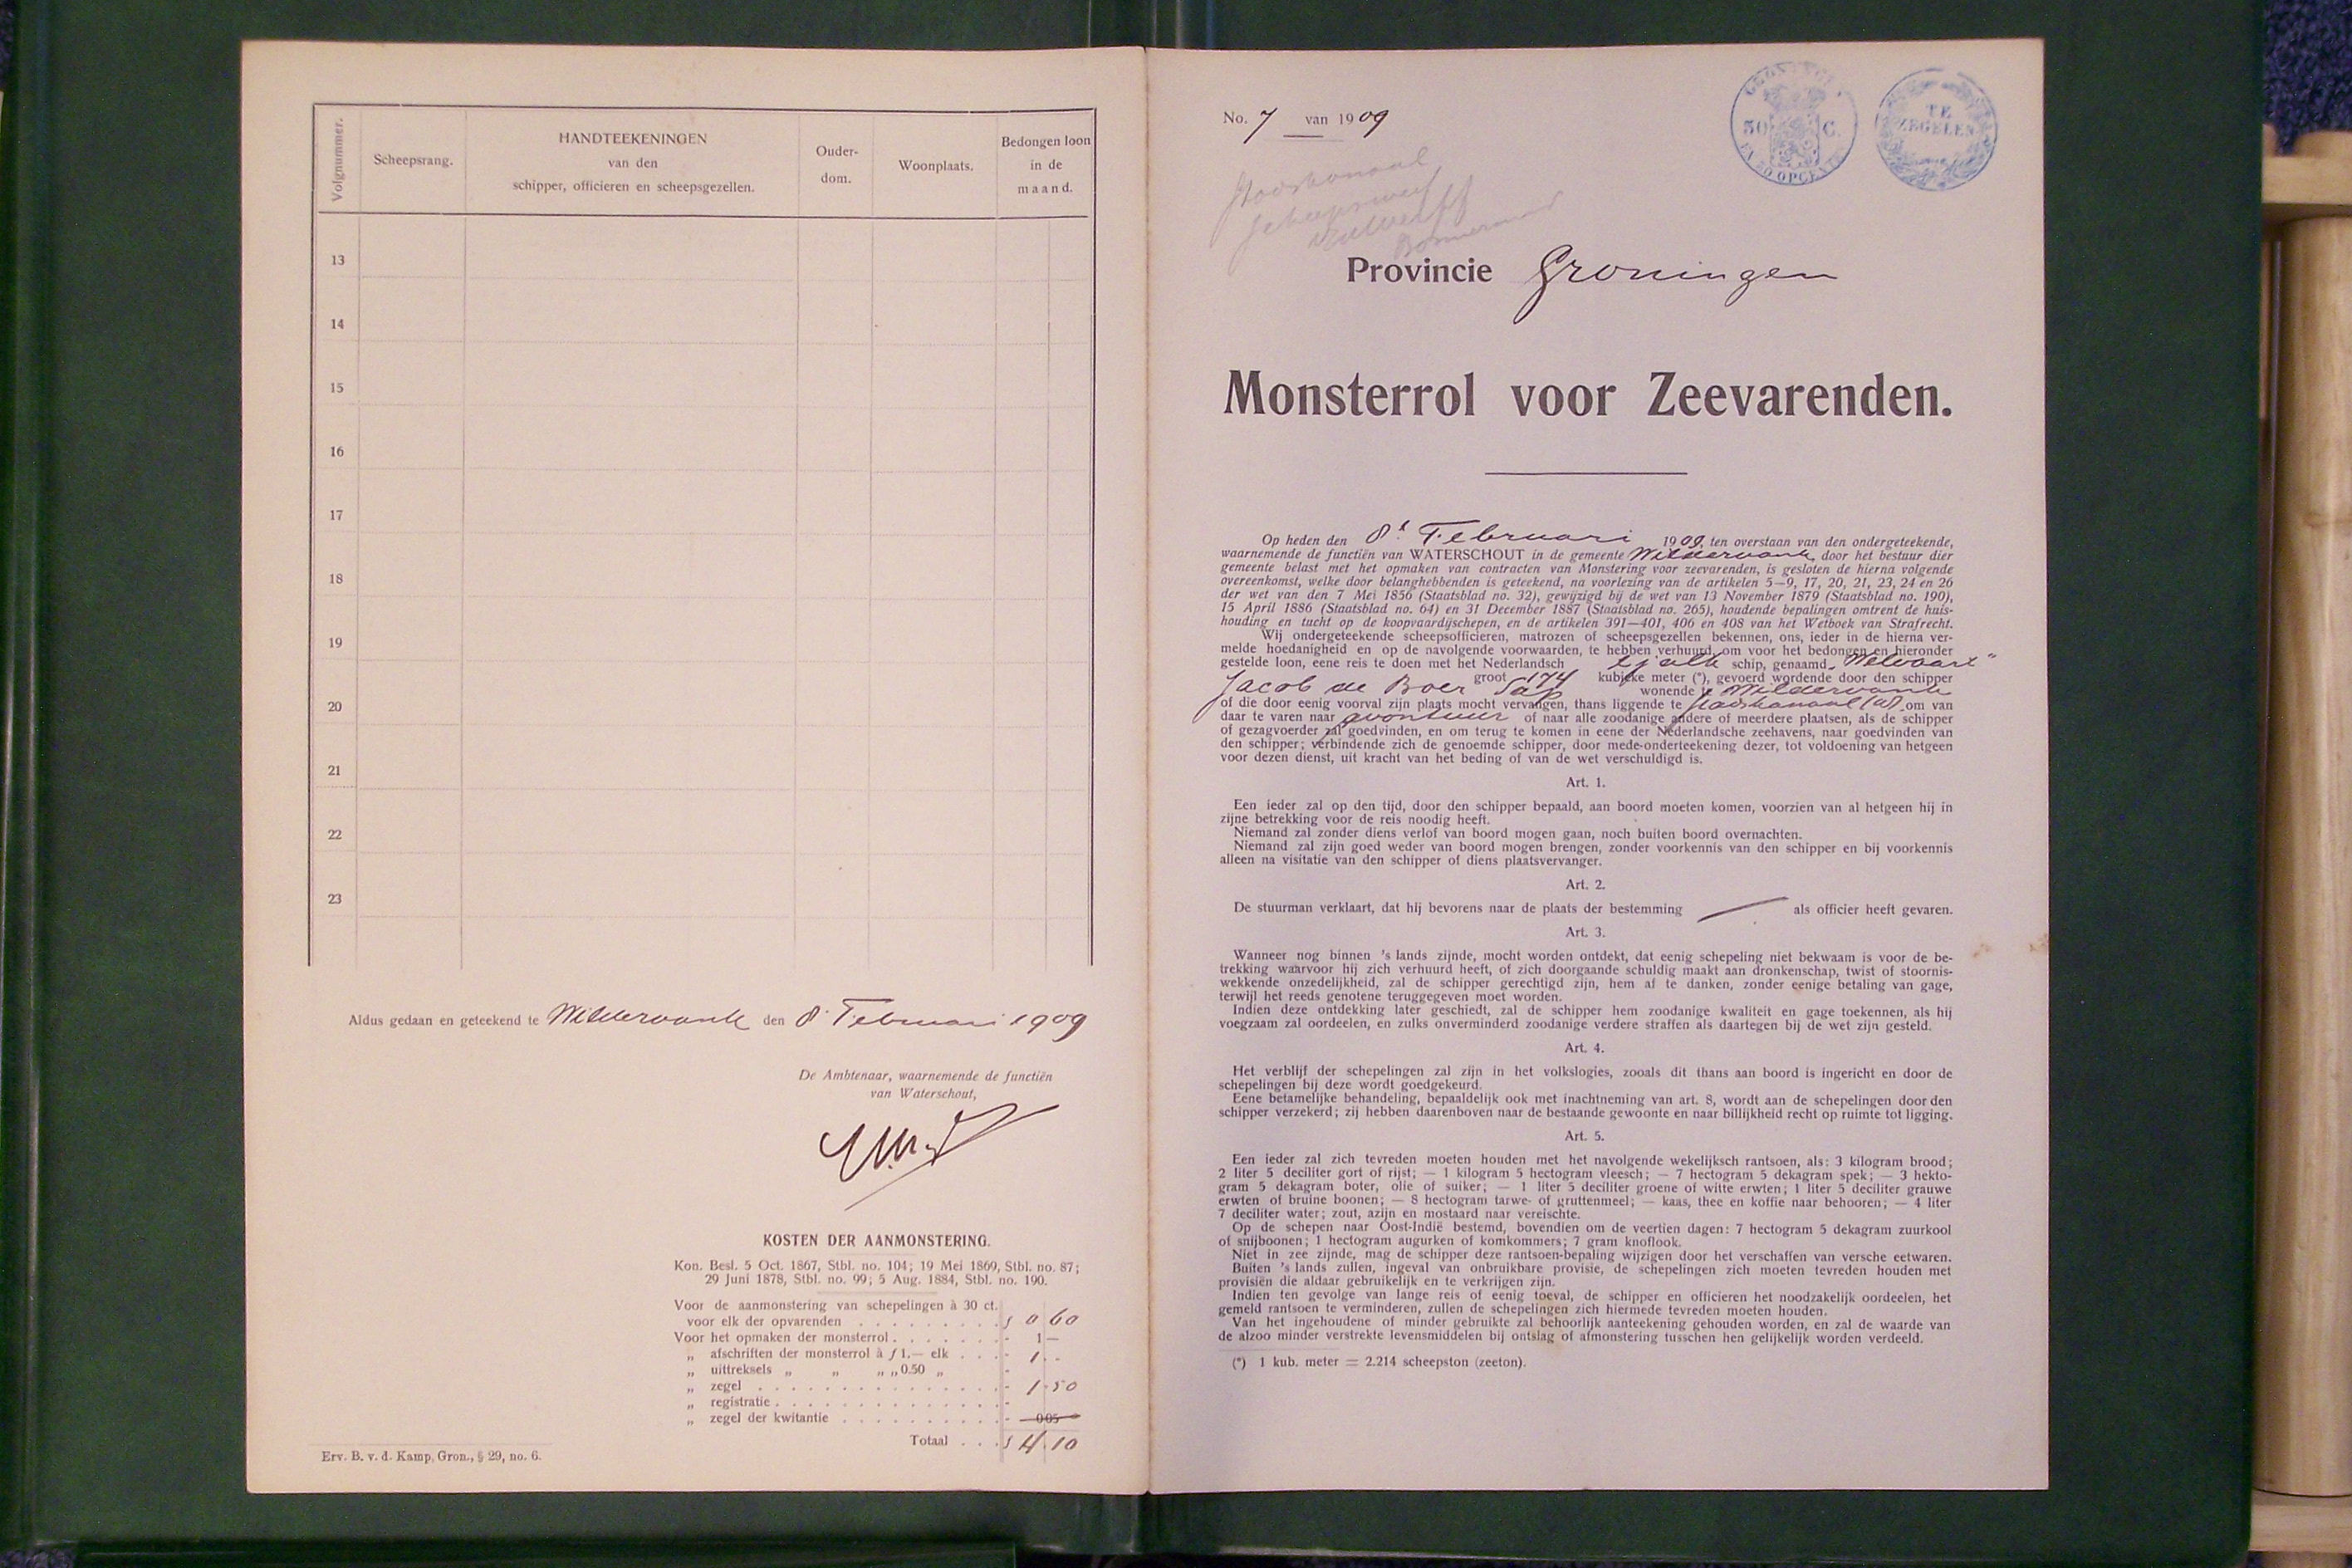 Volgnummer.
Scheepsrang.
HANDTEEKENINGEN
van den
schipper, officieren en scheepsgezellen.
Ouder-
dom.
Woonplaats.
Bedongen loon
in de
maand.
13
14
15
16
17
18
19
20
21
22
23
Aldus gedaan en geteekend te Wildervank den 8 Februari 1909
De Ambtenaar, waarnemende de functiën
van Waterschout,
KOSTEN DER AANMONSTERING.
Kon. Besl. 5 Oct. 1867, Stbl. no. 104; 19 Mei 1869, Stbl. no. 87;
29 Juni 1878, Stbl. no. 99; 5 Aug. 1884, Stbl. no. 190.
Voor de aanmonstering van schepelingen à 30 ct.
voor elk der opvarenden . . . . . . . . . f 0 60
Voor het opmaken der monsterrol . . . . . . . - 1 —
„ afschriften der monsterrol à f 1.— elk . . . - 1 . -
„ uittreksels „ „ „ „ 0.50 „ -
„ zegel . . . . . . . . . . . . . . . - 1.50
„ registratie . . . . . . . . . . . . . . -
„ zegel der kwitantie . . . . . . . . . . - 0.05
Totaal . . . f 4.10
Erv. B. v. d. Kamp, Gron., § 29, no. 6.
No. 7 van 1909
50 C.
EN 50 OPCENTEN
TE
ZEGELEN
Stadskanaal
Scheepswerf
Provincie Groningen
Monsterrol voor Zeevarenden.
Op heden den 8ᵗ Februari 1909, ten overstaan van den ondergeteekende,
waarnemende de functiën van WATERSCHOUT in de gemeente Wildervank, door het bestuur dier
gemeente belast met het opmaken van contracten van Monstering voor zeevarenden, is gesloten de hierna volgende
overeenkomst, welke door belanghebbenden is geteekend, na voorlezing van de artikelen 5—9, 17, 20, 21, 23, 24 en 26
der wet van den 7 Mei 1856 (Staatsblad no. 32), gewijzigd bij de wet van 13 November 1879 (Staatsblad no. 190),
15 April 1886 (Staatsblad no. 64) en 31 December 1887 (Staatsblad no. 265), houdende bepalingen omtrent de huis-
houding en tucht op de koopvaardijschepen, en de artikelen 391—401, 406 en 408 van het Wetboek van Strafrecht.
Wij ondergeteekende scheepsofficieren, matrozen of scheepsgezellen bekennen, ons, ieder in de hierna ver-
melde hoedanigheid en op de navolgende voorwaarden, te hebben verhuurd om voor het bedongen en hieronder
gestelde loon, eene reis te doen met het Nederlandsch tjalk schip, genaamd „Welvaart"
groot 174 kubieke meter (*), gevoerd wordende door den schipper
Jacob de Boer Sap wonende te Wildervank
of die door eenig voorval zijn plaats mocht vervangen, thans liggende te Stadskanaal (W) om van
daar te varen naar avontuur of naar alle zoodanige andere of meerdere plaatsen, als de schipper
of gezagvoerder zal goedvinden, en om terug te komen in eene der Nederlandsche zeehavens, naar goedvinden van
den schipper; verbindende zich de genoemde schipper, door mede-onderteekening dezer, tot voldoening van hetgeen
voor dezen dienst, uit kracht van het beding of van de wet verschuldigd is.
Art. 1.
Een ieder zal op den tijd, door den schipper bepaald, aan boord moeten komen, voorzien van al hetgeen hij in
zijne betrekking voor de reis noodig heeft.
Niemand zal zonder diens verlof van boord mogen gaan, noch buiten boord overnachten.
Niemand zal zijn goed weder van boord mogen brengen, zonder voorkennis van den schipper en bij voorkennis
alleen na visitatie van den schipper of diens plaatsvervanger.
Art. 2.
De stuurman verklaart, dat hij bevorens naar de plaats der bestemming — als officier heeft gevaren.
Art. 3.
Wanneer nog binnen 's lands zijnde, mocht worden ontdekt, dat eenig schepeling niet bekwaam is voor de be-
trekking waarvoor hij zich verhuurd heeft, of zich doorgaande schuldig maakt aan dronkenschap, twist of stoornis-
wekkende onzedelijkheid, zal de schipper gerechtigd zijn, hem af te danken, zonder eenige betaling van gage,
terwijl het reeds genotene teruggegeven moet worden.
Indien deze ontdekking later geschiedt, zal de schipper hem zoodanige kwaliteit en gage toekennen, als hij
voegzaam zal oordeelen, en zulks onverminderd zoodanige verdere straffen als daartegen bij de wet zijn gesteld.
Art. 4.
Het verblijf der schepelingen zal zijn in het volkslogies, zooals dit thans aan boord is ingericht en door de
schepelingen bij deze wordt goedgekeurd.
Eene betamelijke behandeling, bepaaldelijk ook met inachtneming van art. 8, wordt aan de schepelingen door den
schipper verzekerd; zij hebben daarenboven naar de bestaande gewoonte en naar billijkheid recht op ruimte tot ligging.
Art. 5.
Een ieder zal zich tevreden moeten houden met het navolgende wekelijksch rantsoen, als: 3 kilogram brood;
2 liter 5 deciliter gort of rijst; — 1 kilogram 5 hectogram vleesch; — 7 hectogram 5 dekagram spek; — 3 hekto-
gram 5 dekagram boter, olie of suiker; — 1 liter 5 deciliter groene of witte erwten; 1 liter 5 deciliter grauwe
erwten of bruine boonen; — 8 hectogram tarwe- of gruttenmeel; — kaas, thee en koffie naar behooren; — 4 liter
7 deciliter water; zout, azijn en mostaard naar vereischte.
Op de schepen naar Oost-Indië bestemd, bovendien om de veertien dagen: 7 hectogram 5 dekagram zuurkool
of snijboonen; 1 hectogram augurken of komkommers; 7 gram knoflook.
Niet in zee zijnde, mag de schipper deze rantsoen-bepaling wijzigen door het verschaffen van versche eetwaren.
Buiten 's lands zullen, ingeval van onbruikbare provisie, de schepelingen zich moeten tevreden houden met
provisiën die aldaar gebruikelijk en te verkrijgen zijn.
Indien ten gevolge van lange reis of eenig toeval, de schipper en officieren het noodzakelijk oordeelen, het
gemeld rantsoen te verminderen, zullen de schepelingen zich hiermede tevreden moeten houden.
Van het ingehoudene of minder gebruikte zal behoorlijk aanteekening gehouden worden, en zal de waarde van
de alzoo minder verstrekte levensmiddelen bij ontslag of afmonstering tusschen hen gelijkelijk worden verdeeld.
(*) 1 kub. meter = 2.214 scheepston (zeeton).